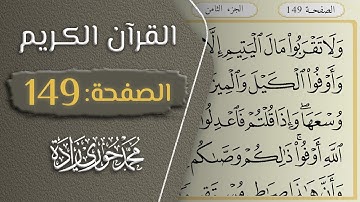 القرآن الكريم
الصفحة: 149
محمد حوري زادة
الصفحة 149
الجزء الثامن
وَلَا تَقْرَبُوا۟ مَالَ ٱلْيَتِيمِ إِلَّا
وَأَوْفُوا۟ ٱلْكَيْلَ وَٱلْمِيزَ
وُسْعَهَا ۖ وَإِذَا قُلْتُمْ فَٱعْدِلُوا۟
ٱللَّهِ أَوْفُوا۟ ۚ ذَٰلِكُمْ وَصَّىٰكُم
وَأَنَّ هَٰذَا صِرَٰطِى مُسْتَقِي